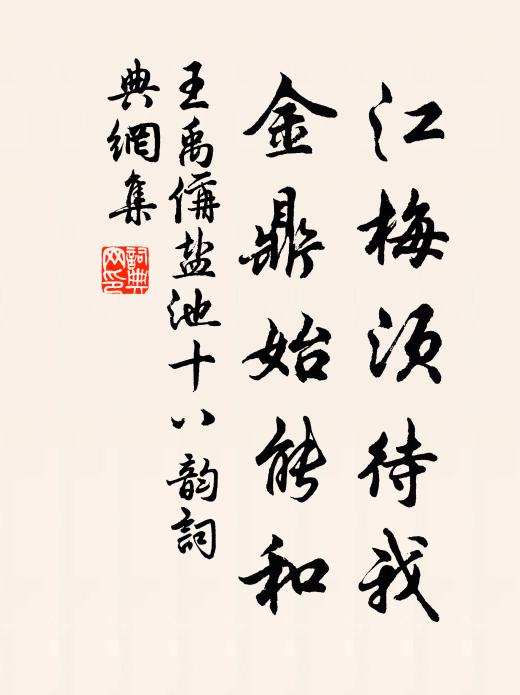 江梅須待我
金鼎始能和
王禹偁盐池十八韵詞
典網集
詞典网印